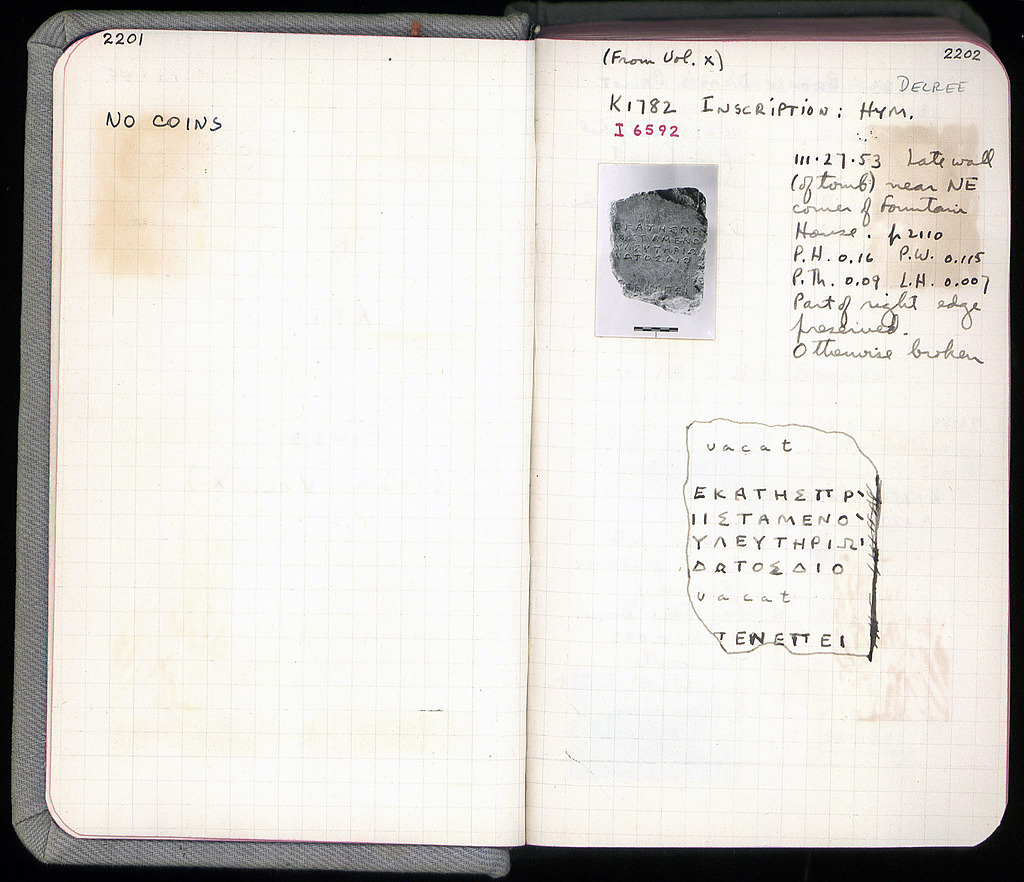 2201
NO COINS
(From Vol. X)
2202
DECREE
K1782 INSCRIPTION: HYM.
I 6592
III·27·53 Late wall
(of tomb) near NE
corner of Fountain
House. p 2110
P.H. 0.16 P.W. 0.115
P.Th. 0.09 L.H. 0.007
Part of right edge
preserved.
Otherwise broken
vacat
ΕΚΑΤΗΣΠΡ
ΙΙΣΤΑΜΕΝΟ
ΥΛΕΥΤΗΡΙΩΙ
ΔΩΤΟΣΔΙΟ
vacat
ΤΕΝΕΠΕΙ